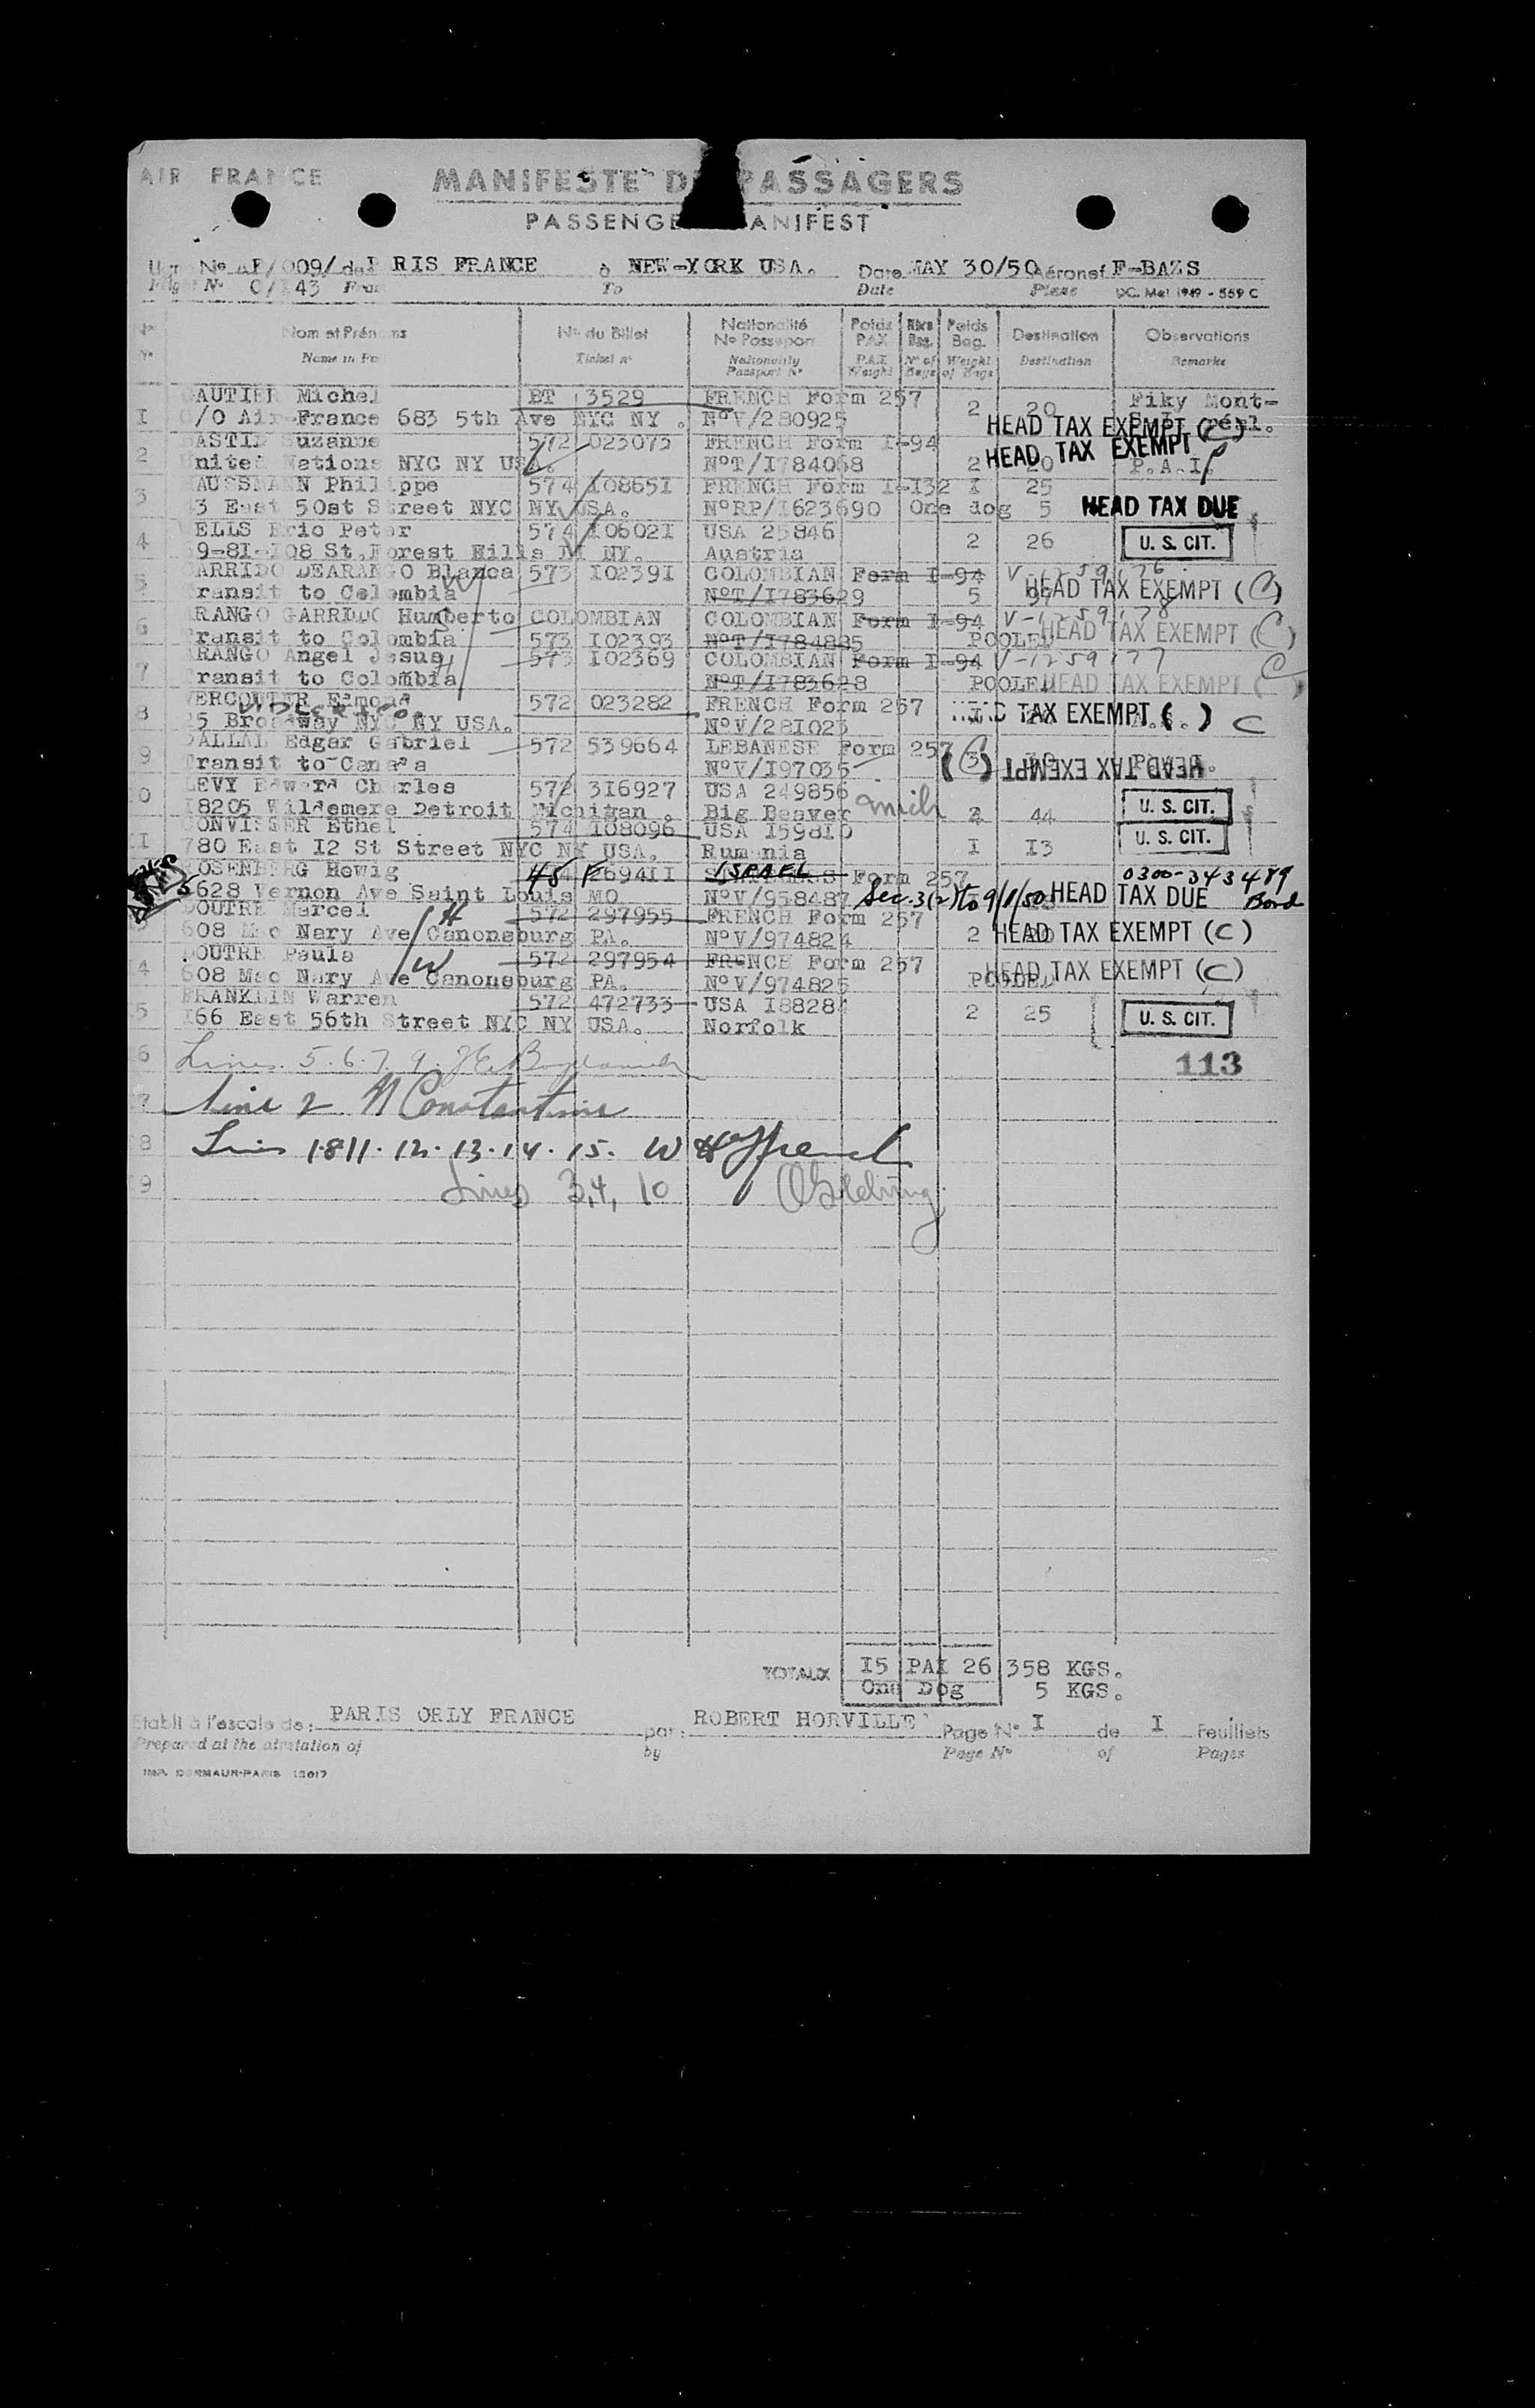 AIR FRANCE
MANIFESTE D PASSAGERS
PASSENGE ANIFEST
No AF/009/ de P RIS FRANCE à NEW-YORK USA. Date MAY 30/50 Aéronef F-BAZS
No C/143 From To Date Plane DC. Mel 1949 - 559 C
Nom et Prénoms No du Billet Nationalité No Passeport Poids PAX Nbre Bag. Poids Bag. Destination Observations
Name in Fu Ticket no Nationality Passport No PAX Weight No of Bags Weight of Bags Destination Remarks
GAUTIER Michel BT 3529 FRENCH Form 257 2 20 Fiky Mont-
1 C/O Air-France 683 5th Ave NYC NY . NoV/280925 HEAD TAX EXEMPT (C)
BASTID Suzanne 572 023073 FRENCH Form I-94 HEAD TAX EXEMPT
2 United Nations NYC NY USA. NoT/I784068 2 20 P.A.I.
3 HAUSSMANN Philippe 574 108651 FRENCH Form I-I32 I 25
43 East 50st Street NYC NY USA. NoRP/I623690 One dog 5 HEAD TAX DUE
WELLS Eric Peter 574 106021 USA 25846
4 69-8I-I08 St.Forest Hills NY. Austria 2 26 U. S. CIT.
5 GARRIDO DEARANGO Blanca W 573 I0239I COLOMBIAN Form I-94 V-1259176
Transit to Colombia NoT/I783629 5 HEAD TAX EXEMPT (C)
6 ARANGO GARRIDO Humberto COLOMBIAN COLOMBIAN Form I-94 V-1259178
Transit to Colombia S 573 I02393 NoT/I784885 POOLED HEAD TAX EXEMPT (C)
7 ARANGO Angel Jesus H 573 I02369 COLOMBIAN Form I-94 V-1259177 C
Transit to Colombia NoT/I783628 POOLED HEAD TAX EXEMPT ( )
8 VERCOUTER Edmond 572 023282 FRENCH Form 257 TAX EXEMPT ( ) C
25 Broadway NYC NY USA. NoV/281023
DALLAL Edgar Gabriel 572 539664 LEBANESE Form 257
9 Transit to Canada NoV/I97035 (C) HEAD TAX EXEMPT
LEVY Edward Charles 572 3I6927 USA 249856
0 I8205 Wildemere Detroit Michigan . Big Beaver mich 44 U. S. CIT.
CONVISSER Ethel 574 108096 USA I59810 U. S. CIT.
11 780 East I2 St Street NYC NY USA. Rumania I I3
ROSENBERG Hewig 48 F 269411 ISRAEL Form 257 0300-343489
5628 Vernon Ave Saint Louis MO NoV/958487 Sec. 3(2) to 9/1/50 HEAD TAX DUE Bond
DOUTRE Marcel H 572 297955 FRENCH Form 257
608 Mac Nary Ave Canonsburg PA. NoV/974824 2 HEAD TAX EXEMPT (C)
4 DOUTRE Paula W 572 297954 FRENCH Form 257 HEAD TAX EXEMPT (C)
608 Mac Nary Ave Canonsburg PA. NoV/974825 POOLED
FRANKLIN Warren 572 472733 USA I88284
5 I66 East 56th Street NYC NY USA. Norfolk 2 25 U. S. CIT.
6 Lines. 5.6.7.9.
113
7 Line 2 N Constantine
8 Lines 1.8 11. 12. 13. 14. 15.
9 Lines 3,4, 10
TOTAUX I5 PAX 26 358 KGS.
One Dog 5 KGS.
Etabli à l'escale de : PARIS ORLY FRANCE par : ROBERT HORVILLE Page No I de I Feuillets
Prepared at the airstation of by Page No of Pages
IMP. DERMAUR-PARIS 12017